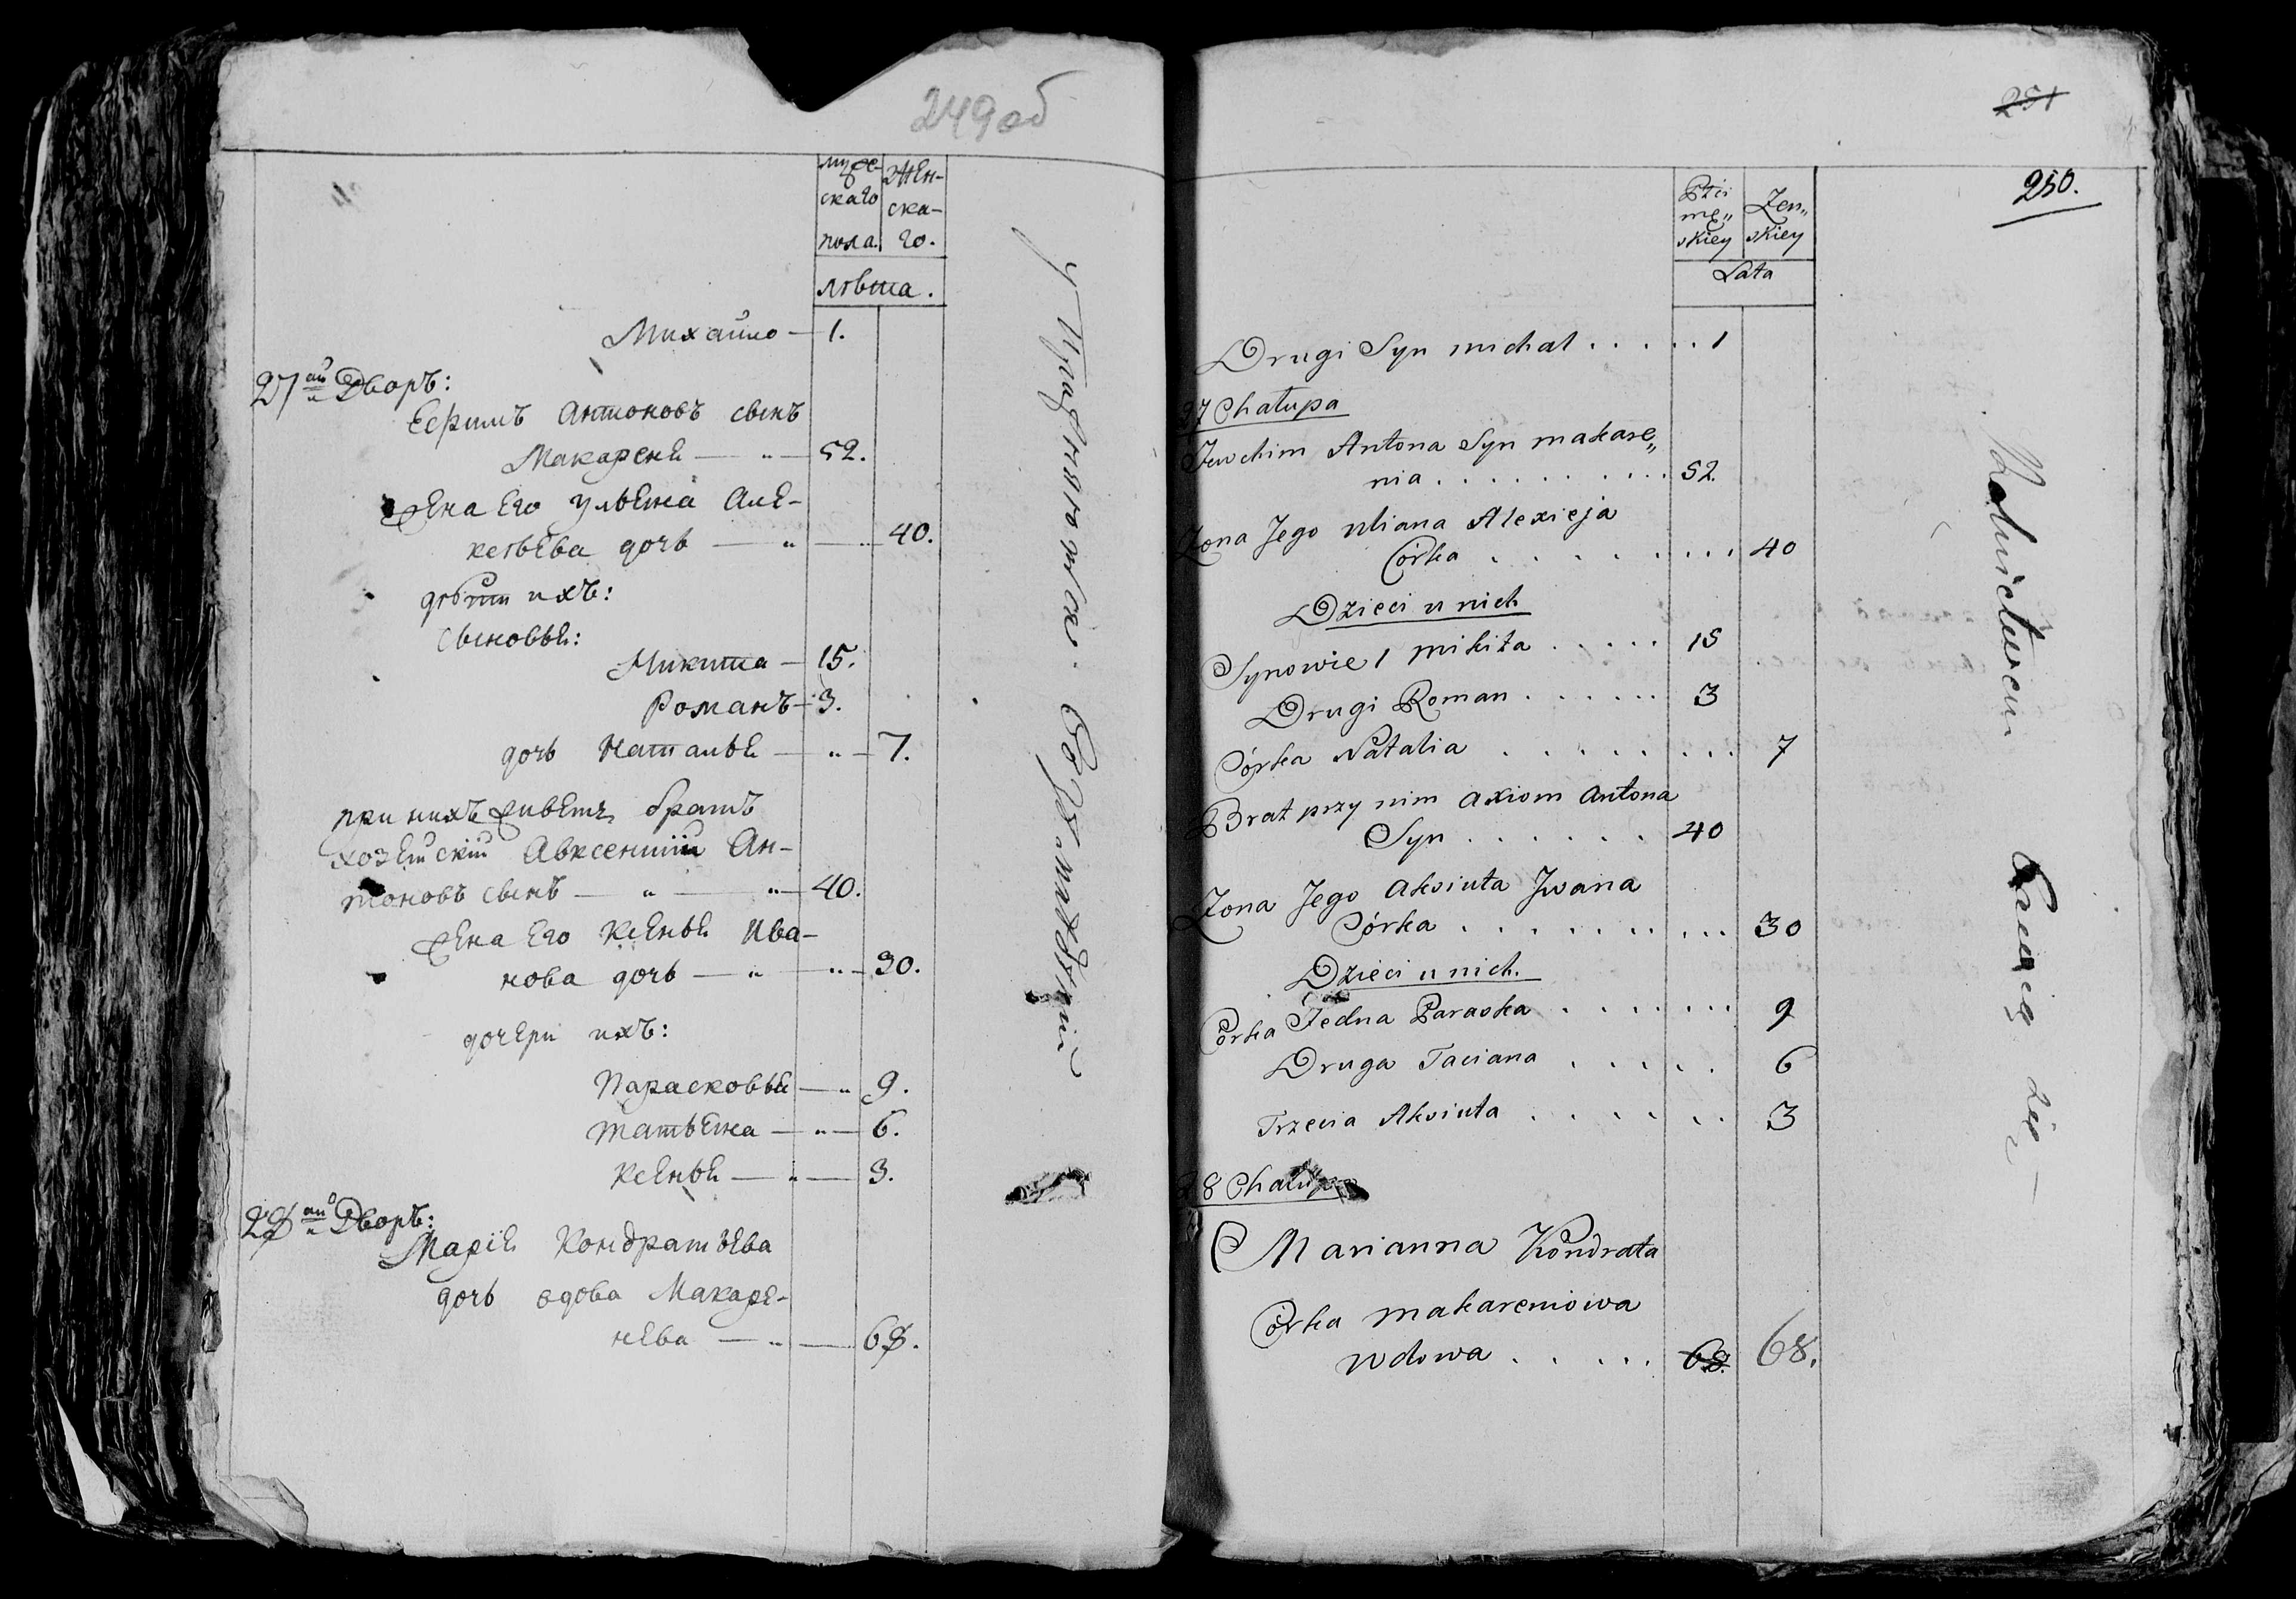 249об
мужескаго пола.
женскаго.
лѣта.
Михайло — 1.
27 ай Дворъ:
Еѳримъ Антоновъ сынъ
Макареня — " — 52.
жена Его Ульяна Але-
ксѣева дочь — " — " 40.
дѣти ихъ:
сыновья:
Микита — 15.
Романъ — 3.
дочь Наталья — " — 7.
при нихъ живетъ братъ
хозяйскій Авксентій Ан-
тоновъ сынъ — " — " — 40.
жена Его Ксенья Ива-
нова дочь — " — " — 30.
дочери ихъ:
Парасковья — " 9.
Татьяна — " — 6.
Ксенья — " — 3.
28 ай Дворъ:
Марія Кондратьева
дочь вдова Макаре-
нева — " — 68.
251
250.
Płci mę„skiey
Zen„skiey
Lata
Drugi Syn michał . . . . . . 1
27 Chałupa
Jewchim Antona Syn makare„
nia . . . . . . . . . . 52.
Zona Jego uliana Alexieja
Córka . . . . . . . . . 40
Dzieci u nich
Synowie 1 mikita . . . . . 15
Drugi Roman . . . . . . 3
Córka Natalia . . . . . . . . 7
Brat przy nim axiom Antona
Syn . . . . . . 40
Zona Jego Aksiuta Jwana
Córka . . . . . . . . . . 30
Dzieci u nich.
Córka Jedna Paraska . . . . . . . . 9
Druga Taciana . . . . . 6
Trzecia Aksiuta . . . . . . 3
28 Chałupa
Marianna Kondrata
Córka makareniowa
wdowa . . . . . 68. 68.